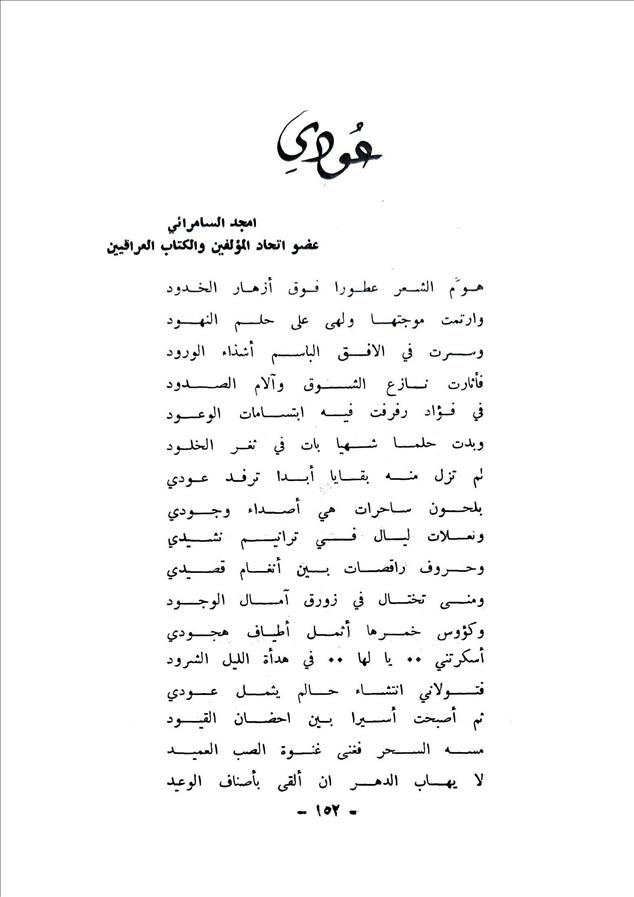 عُودي
امجد السامرائي
عضو اتحاد المؤلفين والكتاب العراقيين
هوَّم الشعر عطورا فوق أزهار الخدود
وارتمت موجتها ولهى على حلم النهود
وسرت في الافق الباسم أشذاء الورود
فأثارت نازع الشوق وآلام الصدود
في فؤاد رفرفت فيه ابتسامات الوعود
وبدت حلما شهيا بات في ثغر الخلود
لم تزل منه بقايا أبدا ترفد عودي
بلحون ساحرات هي أصداء وجودي
وتعلات ليال في ترانيم نشيدي
وحروف راقصات بين أنغام قصيدي
ومنى تختال في زورق آمال الوجود
وكؤوس خمرها أثمل أطياف هجودي
أسكرتني .. يا لها .. في هدأة الليل الشرود
فتولاني انتشاء حالم يثمل عودي
ثم أصبحت أسيرا بين احضان القيود
مسه السحر فغنى غنوة الصب العميد
لا يهاب الدهر ان ألقى بأصناف الوعيد
- ١٥٢ -